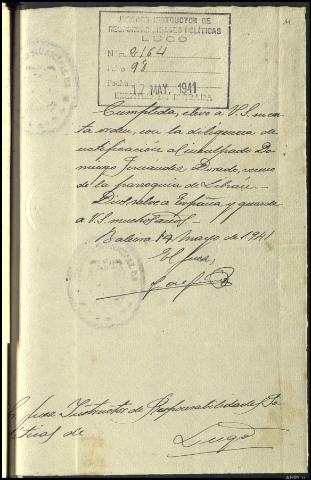 11
JUZGADO INSTRUCTOR DE
RESPONSABILIDADES POLÍTICAS
LUGO
Núm. 2164
98
Fecha 17 MAY. 1941
ENTRADA
Cumplida, elevo a V.S. su
ta orden, con la diligencia de
notificación al inculpado Do-
mingo Fernández, Dorado, vecino
de la parroquia de
Dios salve a España y guarde
a V.S. muchos años.
Baleira 14 Mayo de 1941
El Juez,
Juez Instructor de Responsabilidades Po-
líticas de
Lugo